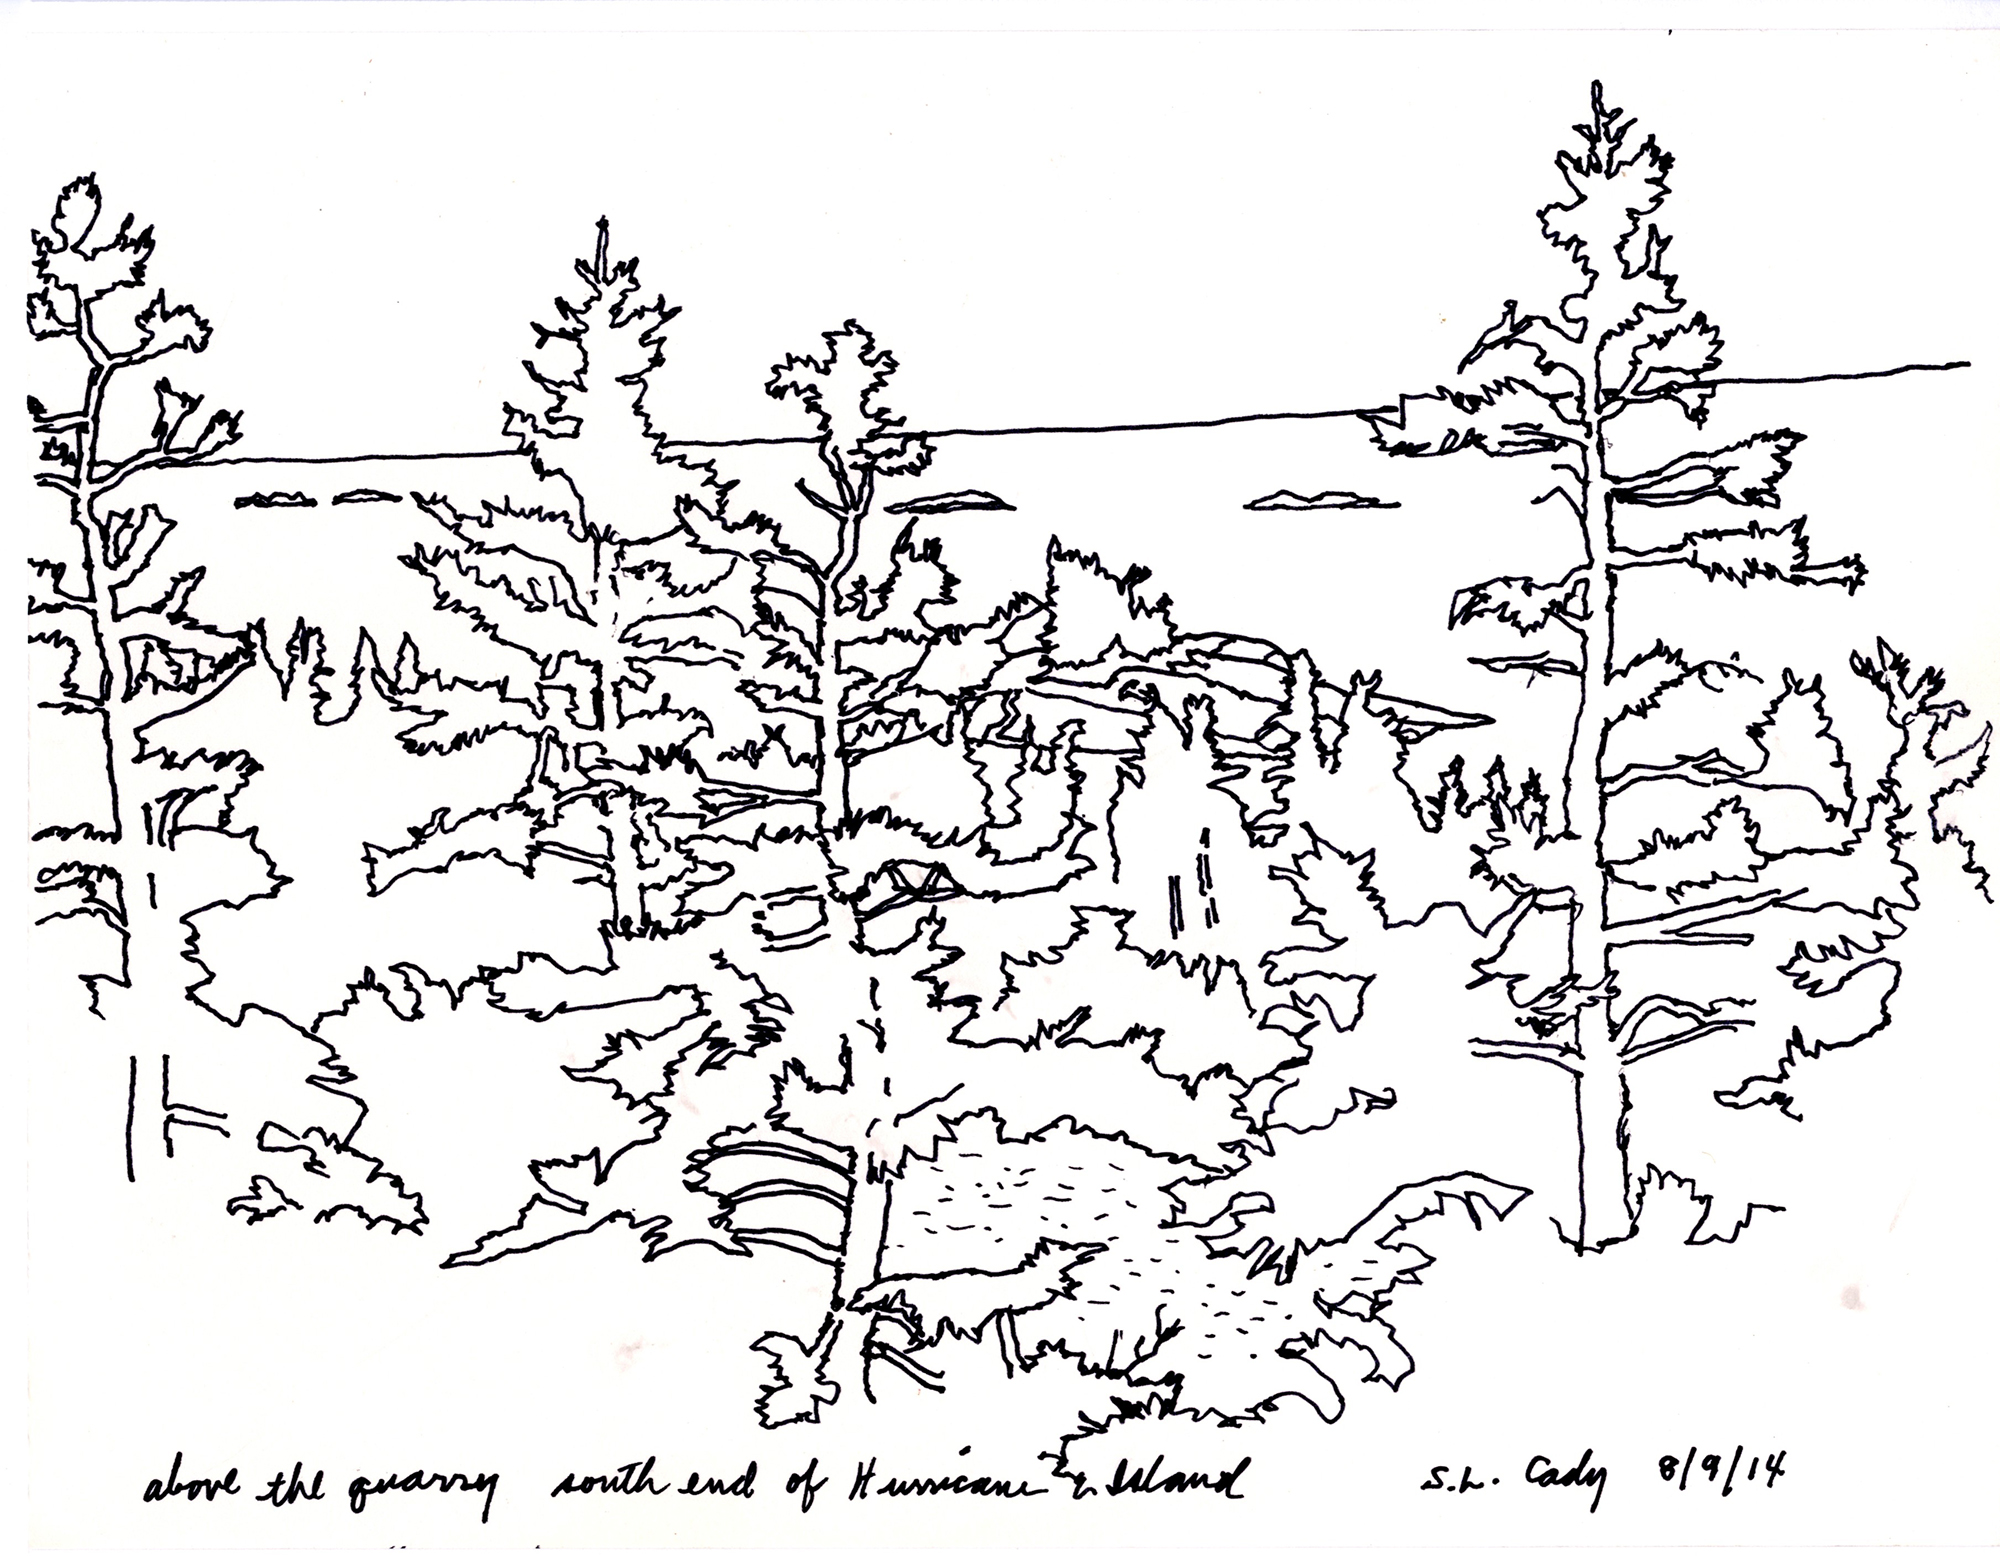 above the quarry south end of Hurricane Island S.L. Cady 8/9/14